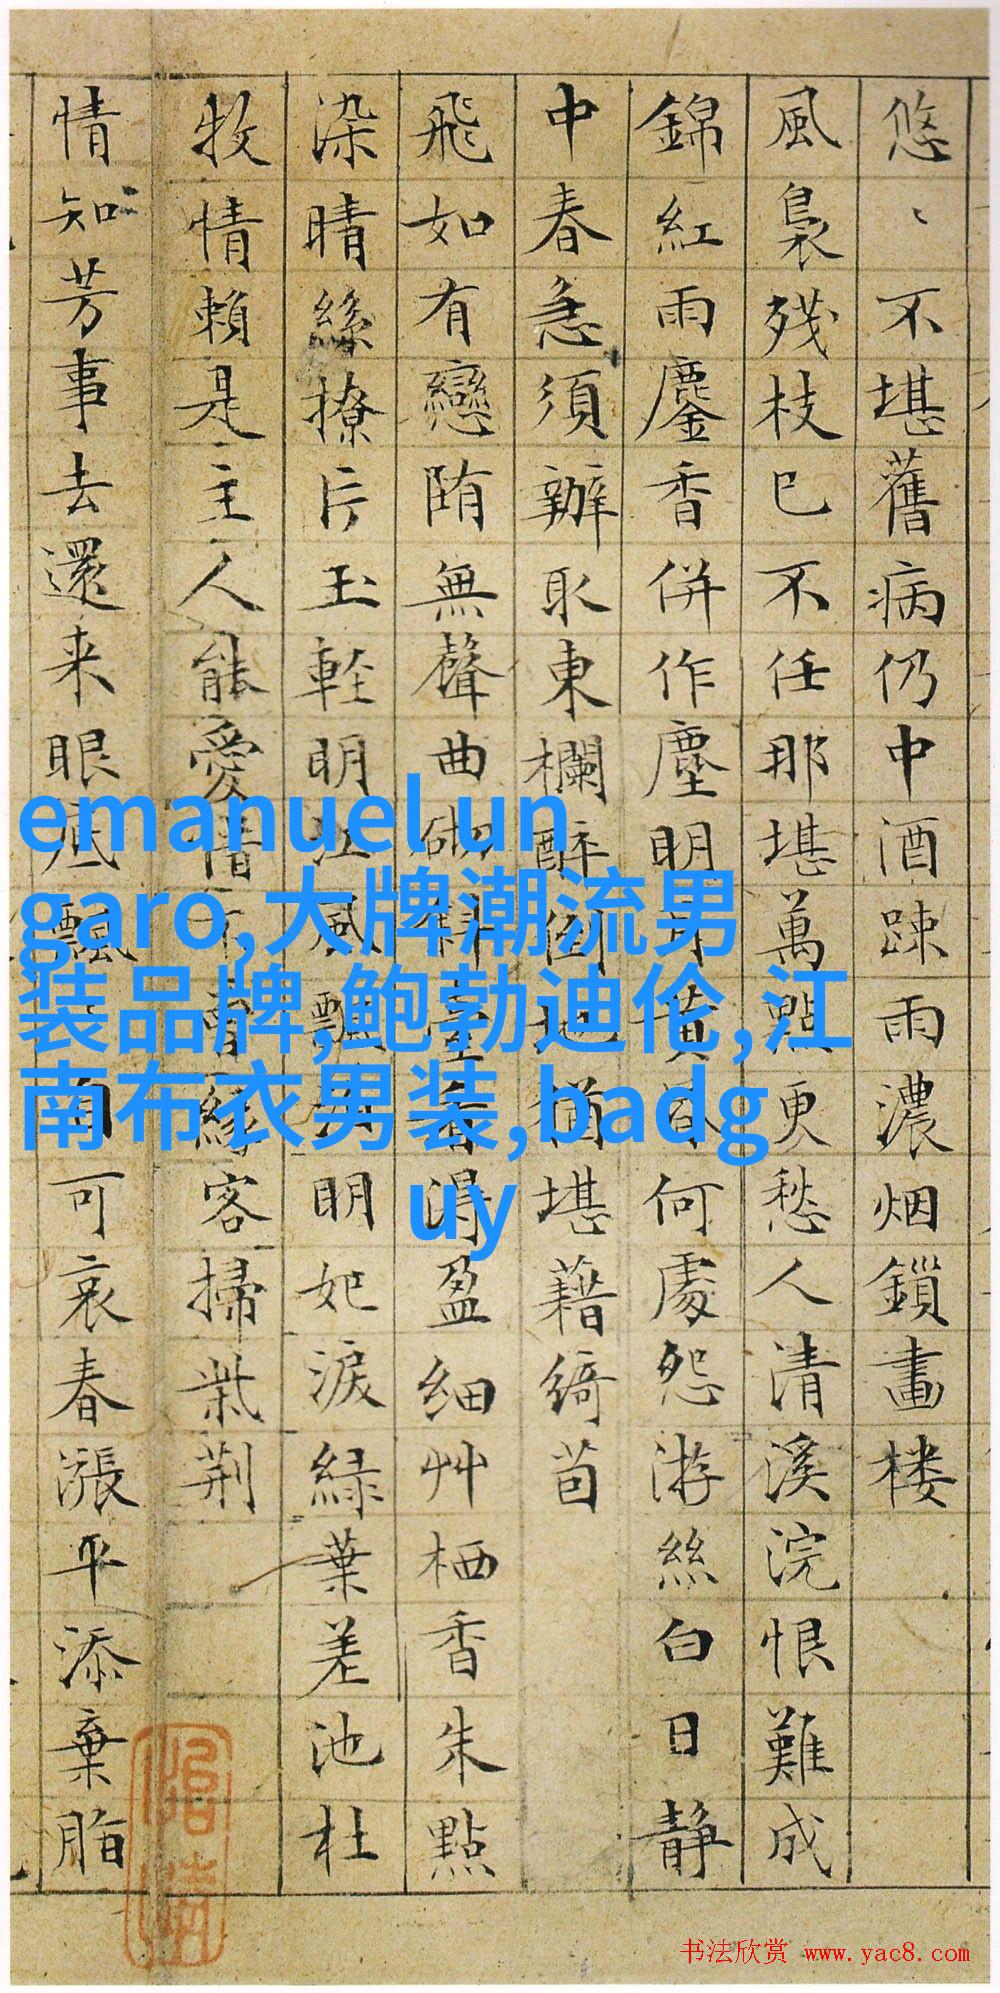 悠、不堪舊病仍中酒踈雨濃烟鎖畫楼
風裊残枝已不任那堪萬點更愁人清溪浣恨難成
錦紅雨鏖香併作塵明月黄昏何處怨游絲白日静
中春急須辦取東欄醉倒地猶堪藉綺茵
飛如有戀陏無聲曲砌斜臺看得盈細艸栖香朱點
染晴絲撩片玉輕明江風飄泊明妃淚緑葉差池杜
牧情賴是主人能愛惜不曾緣客掃柴荆
情知芳事去還来眼底飄自可哀春漲平添棄脂
emanuel un
garo,大牌潮流男
装品牌,鲍勃迪伦,江
南布衣男装,badg
uy
书法欣赏 www.yac8.com